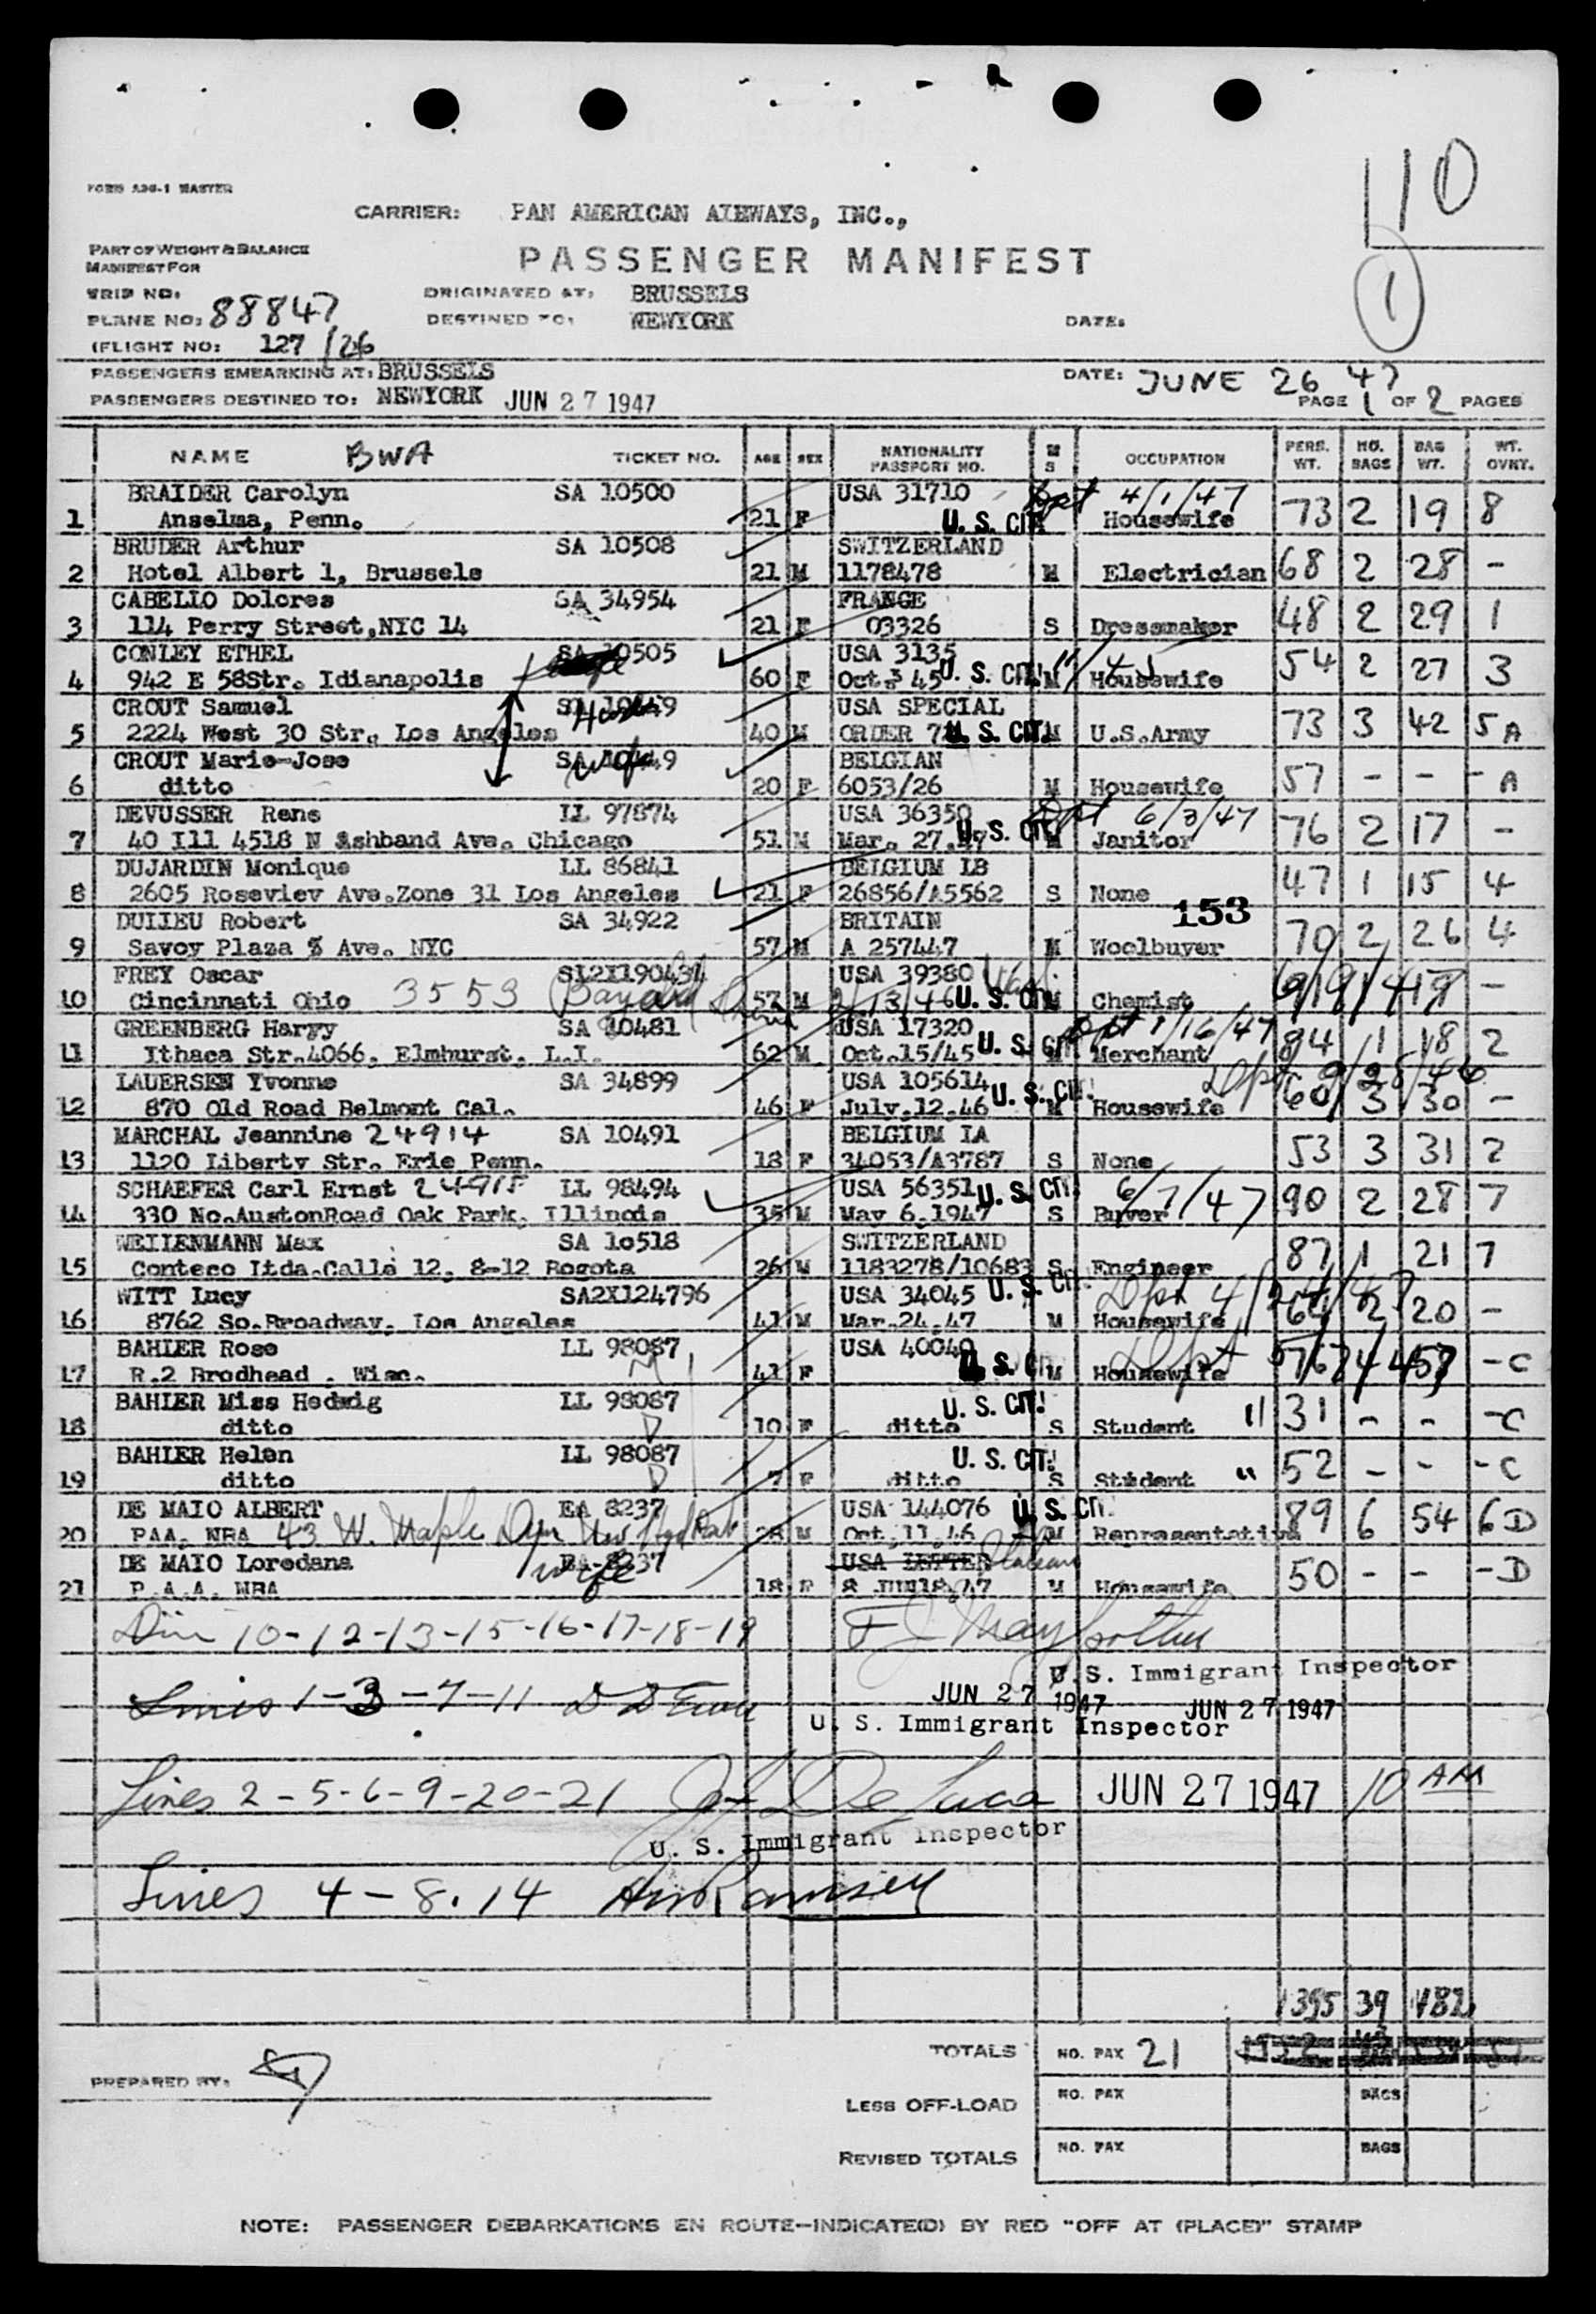 110
1
FORM ADG-1 MASTER
CARRIER: PAN AMERICAN AIRWAYS, INC.,
PART OF WEIGHT & BALANCE
MANIFEST FOR
PASSENGER MANIFEST
TRIP NO:
PLANE NO: 88847
(FLIGHT NO: 127/26
ORIGINATED AT: BRUSSELS
DESTINED TO: NEWYORK
DATE:
PASSENGERS EMBARKING AT: BRUSSELS
PASSENGERS DESTINED TO: NEWYORK JUN 27 1947
DATE: JUNE 26 47
PAGE 1 OF 2 PAGES
NAME BWA TICKET NO. AGE SEX NATIONALITY PASSPORT NO. M S OCCUPATION PERS. WT. NO. BAGS BAG WT. WT. OVRT.
BRAIDER Carolyn SA 10500 USA 31710 Dpt 4/1/47
1 Anselma, Penn. 21 F U. S. CIT. Housewife 73 2 19 8
BRUDER Arthur SA 10508 SWITZERLAND
2 Hotel Albert 1, Brussels 21 M 1178478 M Electrician 68 2 28 -
CABELLO Dolores SA 34954 FRANGE
3 114 Perry Street,NYC 14 21 F 03326 S Dressmaker 48 2 29 1
CONLEY ETHEL SA 10505 USA 3135
4 942 E 58Str. Idianapolis 60 F Oct. 3 45 U. S. CIT! M Housewife 54 2 27 3
CROUT Samuel USA SPECIAL
5 2224 West 30 Str. Los Angeles 40 M ORDER U. S. CIT. M U.S.Army 73 3 42 5 A
CROUT Marie-Jose wife BELGIAN
6 ditto 20 F 6053/26 M Housewife 57 - - - A
DEVUSSER Rene LL 97874 USA 36350 Dpt 6/3/47
7 40 Ill 4518 N Ashband Ave. Chicago 51 M Mar. 27.47 U. S. CIT. Janitor 76 2 17 -
DUJARDIN Monique LL 86841 BELGIUM LB
8 2605 Roseviev Ave.Zone 31 Los Angeles 21 F 26856/A5562 S None 47 1 15 4
153
DULIEU Robert SA 34922 BRITAIN
9 Savoy Plaza 5 Ave. NYC 57 M A 257447 M Woolbuyer 70 2 26 4
FREY Oscar USA 39380
10 Cincinnati Ohio 3553 57 M 13/46 U. S. CIT. Chemist -
GREENBERG Harry SA 10481 USA 17320 Dpt 1/16/47
11 Ithaca Str.4066, Elmhurst, L.I. 62 M Oct.15/45 U. S. CIT. Merchant 84 1 18 2
LAUERSEN Yvonne SA 34899 USA 105614 Dpt 9/28/46
12 870 Old Road Belmont Cal. 46 F July.12.46 U. S. CIT. M Housewife 60 3 30 -
MARCHAL Jeannine 24914 SA 10491 BELGIUM IA
13 1120 Liberty Str. Erie Penn. 18 F 34053/A3787 S None 53 3 31 2
SCHAEFER Carl Ernst 24915 LL 98494 USA 56351 U. S. CIT. 6/7/47
14 330 No.AustonRoad Oak Park, Illinois 35 M May 6.1947 S Buyer 90 2 28 7
WEILENMANN Max SA 10518 SWITZERLAND
15 Conteco Ltda.Calle 12, 8-12 Bogota 26 M 1183278/10683 S Engineer 87 1 21 7
WITT Lucy SA2X124796 USA 34045 U. S. CIT. Dpt 4/24/47
16 8762 So.Broadway. Los Angeles 41 M Mar.24.47 M Housewife 64 2 20 -
BAHLER Rose LL 98087 USA 40040 Dpt
17 R.2 Brodhead . Wisc. 41 F U. S. CIT. M Housewife - C
BAHLER Miss Hedwig LL 98087 U. S. CIT!
18 ditto 10 F ditto S Student " 31 - - - C
BAHLER Helen LL 98087 U. S. CIT!
19 ditto 7 F ditto S Student " 52 - - - C
DE MAIO ALBERT EA 8237 USA 144076 U. S. CIT.
20 PAA, NBA 43 W. Maple 28 M Oct.11.46 M Representative 89 6 54 6 D
DE MAIO Loredana EA-8237 wife USA LETTER Italian
21 P.A.A. NBA 18 F 8 JUN18.47 M Housewife 50 - - - D
10-12-13-15-16-17-18-19
U. S. Immigrant Inspector
Lines 1-3-7-11
JUN 27 1947 JUN 27 1947
U. S. Immigrant Inspector
Lines 2-5-6-9-20-21 De Luca JUN 27 1947 10 AM
U. S. Immigrant Inspector
Lines 4-8.14 Ramsey
1395 39
TOTALS NO. PAX 21
PREPARED BY:
LESS OFF-LOAD NO. PAX BAGS
REVISED TOTALS NO. PAX BAGS
NOTE: PASSENGER DEBARKATIONS EN ROUTE—INDICATE(D) BY RED "OFF AT (PLACE)" STAMP